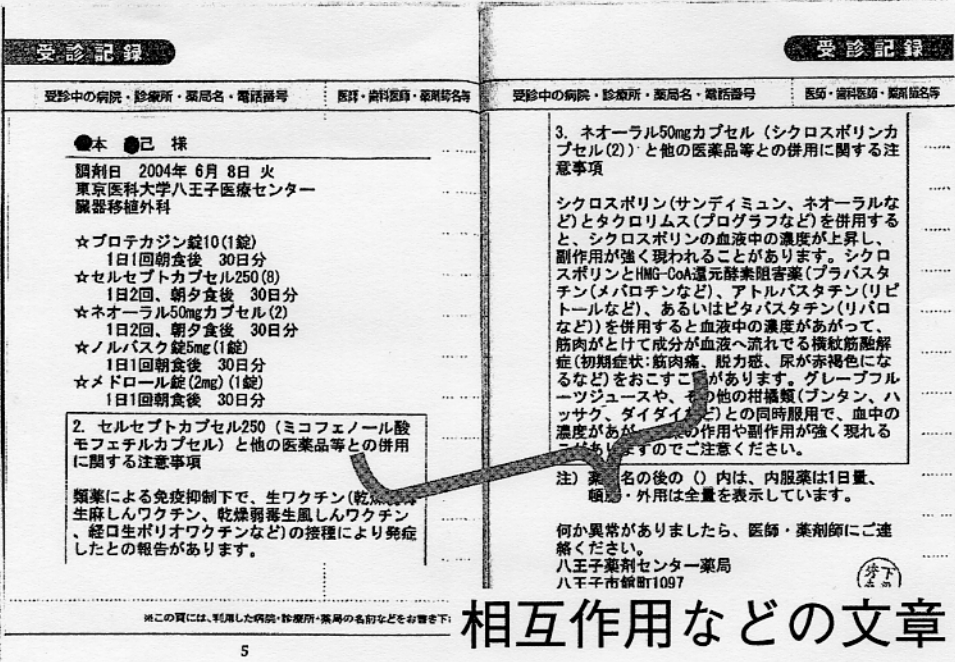 受診記録
受診中の病院・診療所・薬局名・電話番号
医師・歯科医師・薬剤師名等
本 己 様
調剤日 2004年 6月 8日 火
東京医科大学八王子医療センター
臓器移植外科
☆プロテカジン錠10(1錠)
1日1回朝食後 30日分
☆セルセプトカプセル250(8)
1日2回、朝夕食後 30日分
☆ネオーラル50mgカプセル(2)
1日2回、朝夕食後 30日分
☆ノルバスク錠5mg(1錠)
1日1回朝食後 30日分
☆メドロール錠(2mg)(1錠)
1日1回朝食後 30日分
2. セルセプトカプセル250 (ミコフェノール酸
モフェチルカプセル) と他の医薬品等との併用
に関する注意事項
類薬による免疫抑制下で、生ワクチン(乾燥弱毒
生麻しんワクチン、乾燥弱毒生風しんワクチン
、経口生ポリオワクチンなど)の接種により発症
したとの報告があります。
※この頁には、利用した病院・診療所・薬局の名前などをお書き下
5
受診記録
受診中の病院・診療所・薬局名・電話番号
医師・歯科医師・薬剤師名等
3. ネオーラル50mgカプセル (シクロスポリンカ
プセル(2)) と他の医薬品等との併用に関する注
意事項
シクロスポリン(サンディミュン、ネオーラルな
ど)とタクロリムス(プログラフなど)を併用する
と、シクロスポリンの血液中の濃度が上昇し、
副作用が強く現われることがあります。シクロ
スポリンとHMG-CoA還元酵素阻害薬(プラバスタ
チン(メバロチンなど)、アトルバスタチン(リピ
トールなど)、あるいはピタバスタチン(リバロ
など))を併用すると血液中の濃度があがって、
筋肉がとけて成分が血液へ流れでる横紋筋融解
症(初期症状:筋肉痛、脱力感、尿が赤褐色にな
るなど)をおこすこ があります。グレープフル
ーツジュースや、その他の柑橘類(ブンタン、ハ
ッサク、ダイダイなど)との同時服用で、血中の
濃度があが の作用や副作用が強く現れる
ことがありますのでご注意ください。
注) 薬 名の後の () 内は、内服薬は1日量、
頓服・外用は全量を表示しています。
何か異常がありましたら、医師・薬剤師にご連
絡ください。
八王子薬剤センター薬局
八王子市館町1097
相互作用などの文章